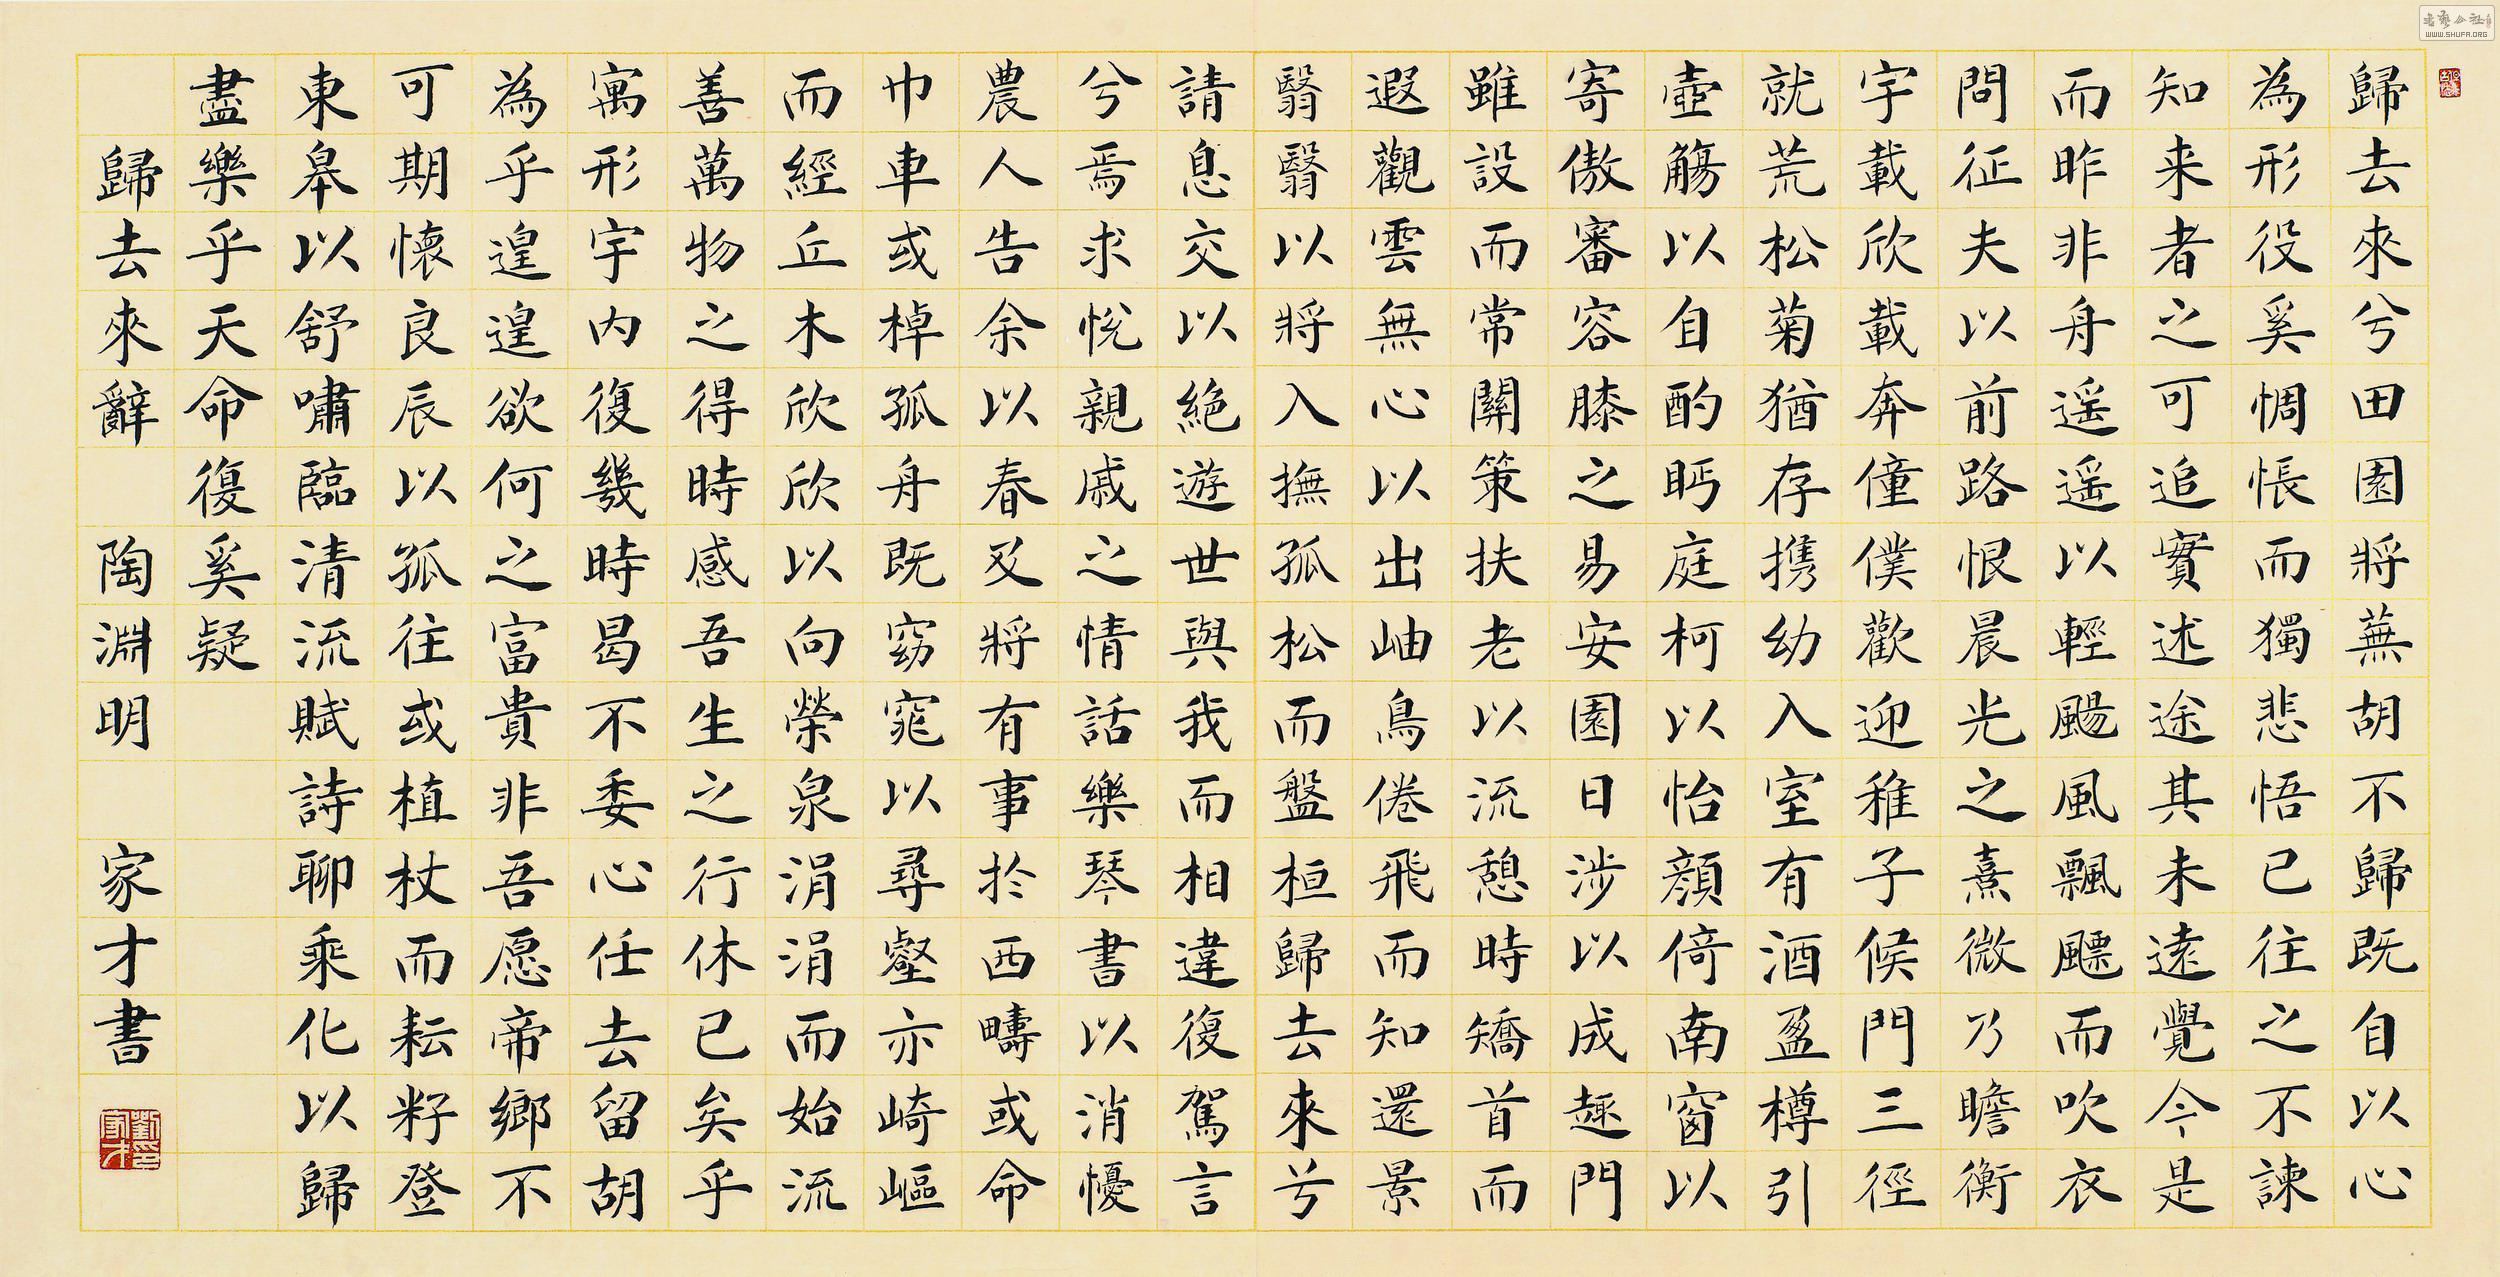 歸去來兮田園將蕪胡不歸既自以心
為形役奚惆悵而獨悲悟已往之不諫
知来者之可追實述途其未遠覺今是
而昨非舟遥遥以輕颺風飄飃而吹衣
問征夫以前路恨晨光之熹微乃瞻衡
宇載欣載奔僮僕歡迎稚子候門三徑
就荒松菊猶存携幼入室有酒盈樽引
壺觴以自酌眄庭柯以怡顏倚南窗以
寄傲審容膝之易安園日涉以成趣門
雖設而常關策扶老以流憩時矯首而
遐觀雲無心以出岫鳥倦飛而知還景
翳翳以將入撫孤松而盤桓歸去來兮
請息交以絕遊世與我而相違復駕言
兮焉求悅親戚之情話樂琴書以消懮
農人告余以春及將有事於西疇或命
巾車或棹孤舟既窈窕以尋壑亦崎嶇
而經丘木欣欣以向榮泉涓涓而始流
善萬物之得時感吾生之行休已矣乎
寓形宇内復幾時曷不委心任去留胡
為乎遑遑欲何之富貴非吾愿帝鄉不
可期懷良辰以孤往或植杖而耘籽登
東皋以舒嘯臨清流賦詩聊乘化以歸
盡樂乎天命復奚疑
歸去來辭 陶淵明 家才書
劉印家才
WWW.SHUFA.ORG